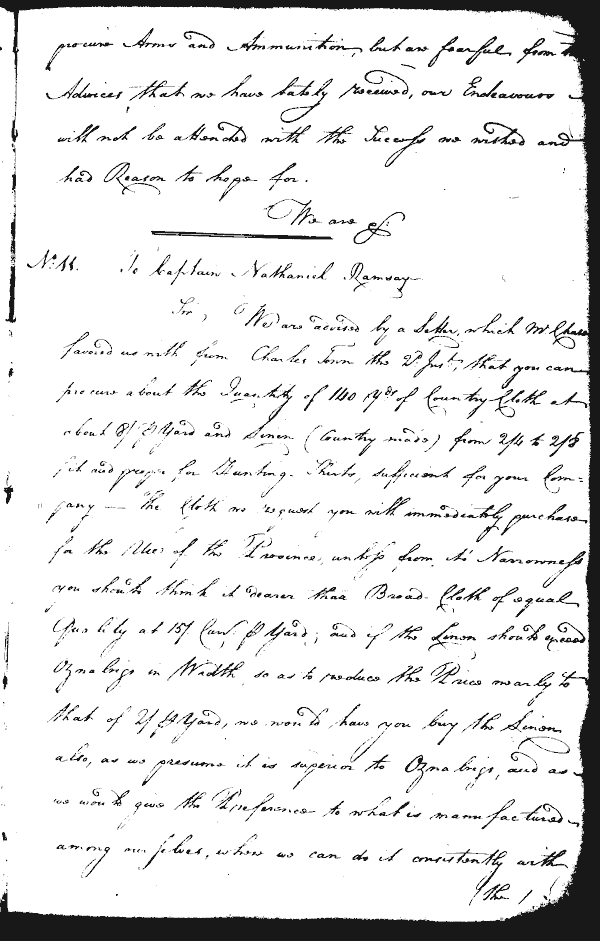 procure Arms and Ammunition, but are fearful from the
Advices, that we have lately received, our Endeavours
will not be attended with the Success we wished and
had Reason to hope for.
We are &c.
No. 11. To Captain Nathaniel Ramsay
Sir, We are advised by a Letter, which Mr Chase
favored us with from Charles Town the 2d Inst, that you can
procure about the Quantity of 140 Yds of Country Cloth at
about 8/ ⅌ Yard and Linen (Country made) from 2/4 to 2/8
fit and proper for Hunting Shirts, sufficient for your Com-
pany — The Cloth we request you will immediately purchase
for the Use of the Province, unless from its Narrowness
you should think it dearer than Broad Cloth of equal
Quality at 15/ Curr. ⅌ Yard; and if the Linen should exceed
Oznabrigs in Width so as to reduce the Price nearly to
that of 2/ ⅌ Yard, we would have you buy the Linen
also, as we presume it is superior to Oznabrigs, and as
we would give the Preference to what is manufactured
among ourselves, where we can do it consistently with
(the)